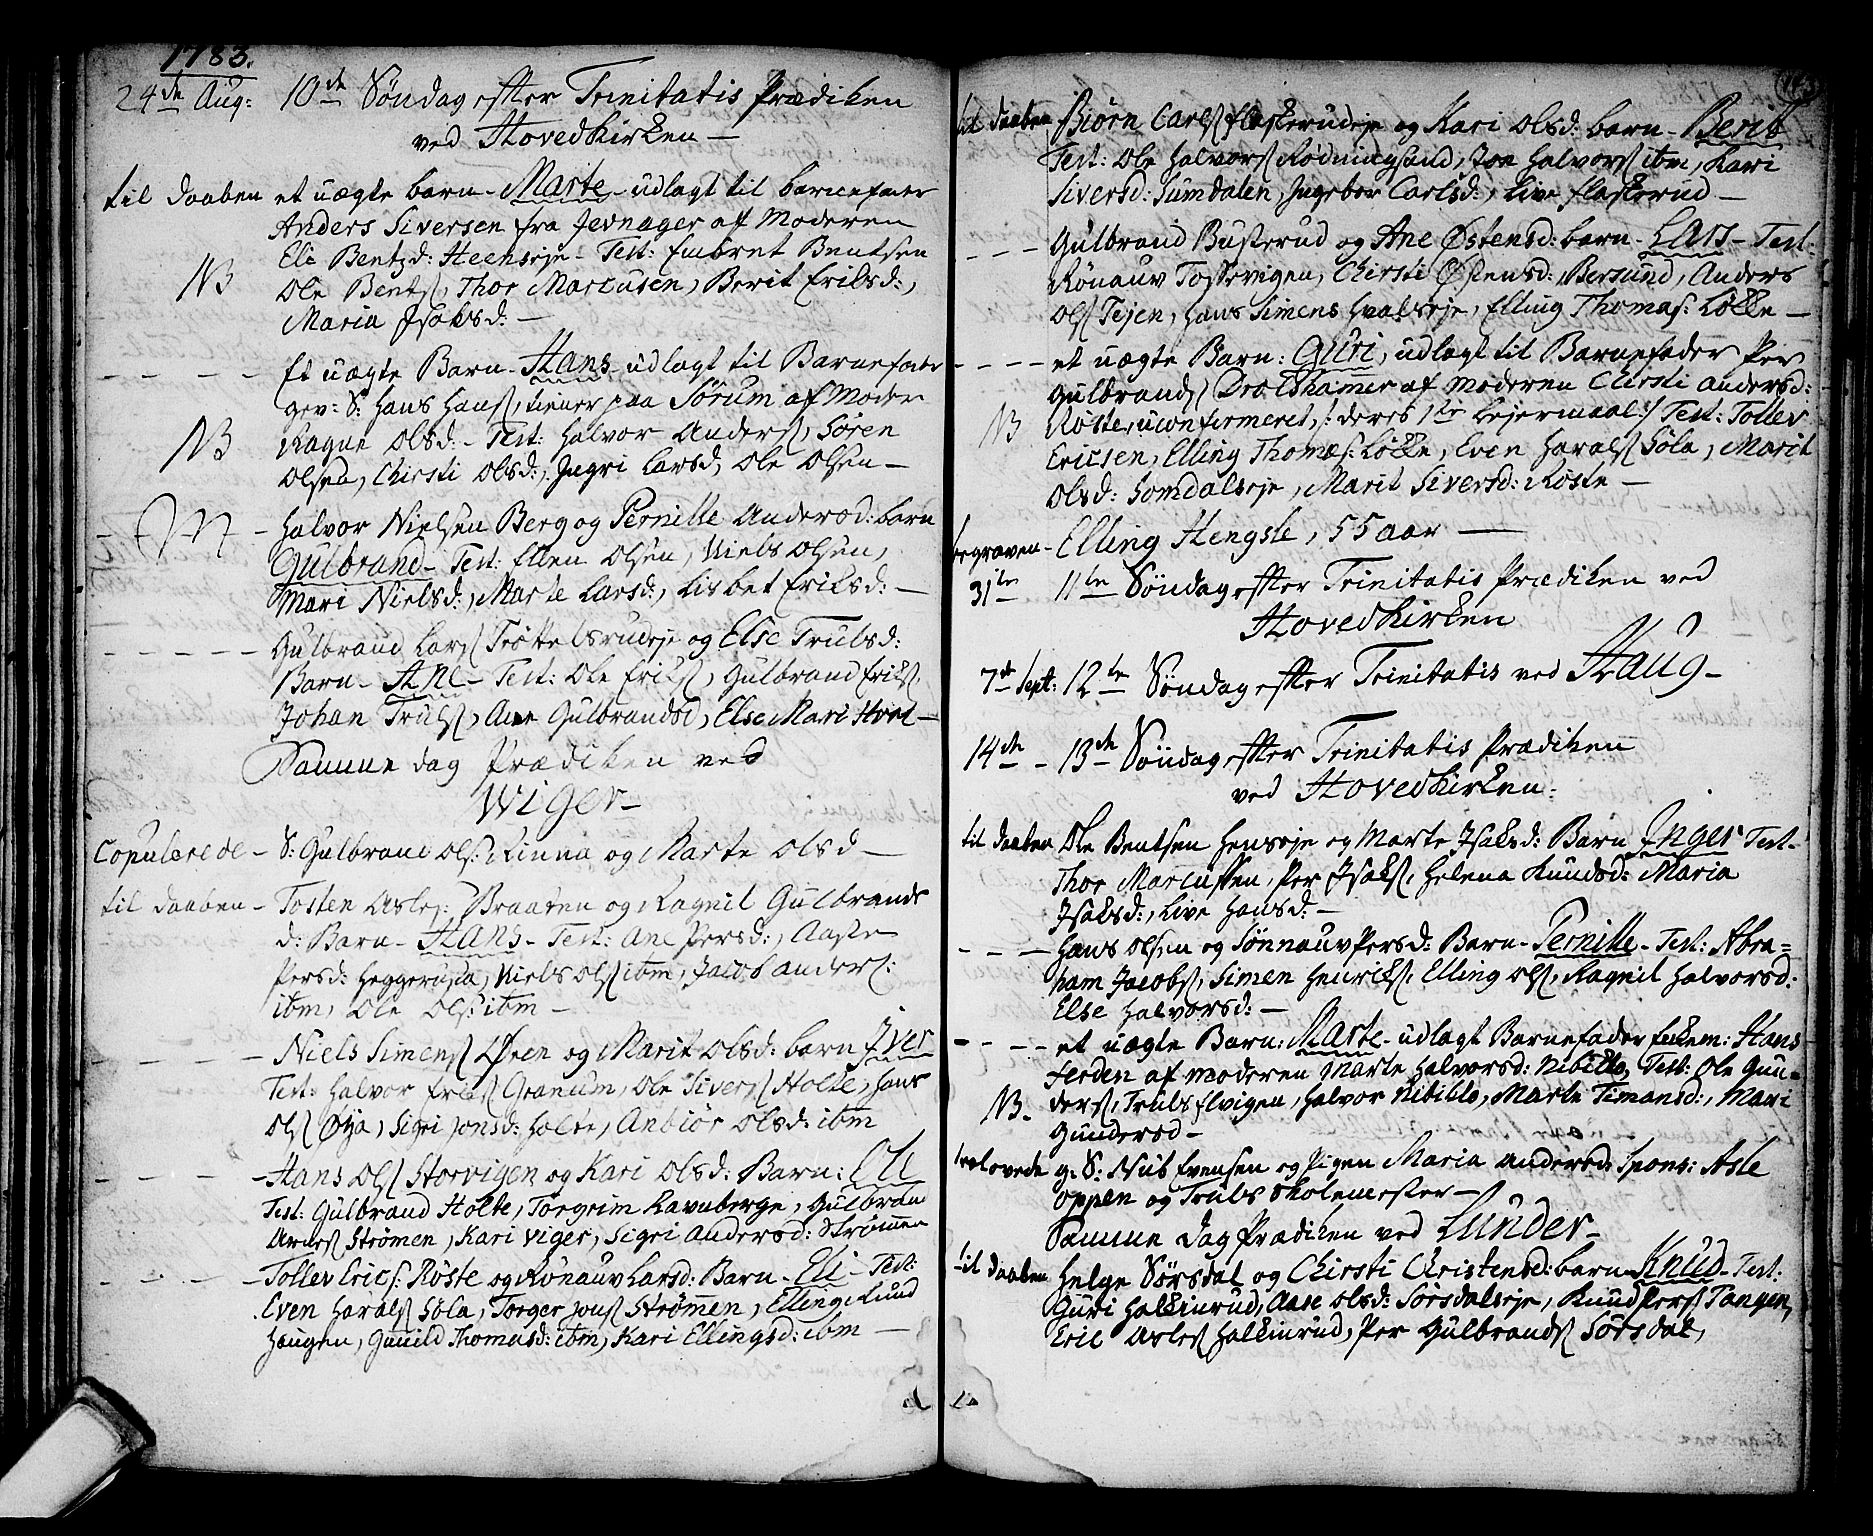 1783.
24de Aug: 10de Søndag efter Trinitatis Prædiken
ved Hovedkirken —
til daaben et uægte barn - Marte - udlagt til barnefaer
Anders Siversen fra Jevnager af Moderen
Eli Bentsd: Heenseje - Test: Embret Bentsen
NB Ole Bents, Thor Marcusen, Berit Eriksd:,
Maria Isaksd: —
- - - - Et uægte Barn - Hans - udlagt til Barnefader
gev: S: Hans Hans, tiener paa Sørum af Moder
NB Ragne Olsd: - Test: Halvor Anders, Søren
Olsen, Chirsti Olsd:, Ingri Larsd, Ole Olsen —
- Halvor Nielsen Berg og Pernille Andersd: barn
Gulbrand - Test: Ellen Olsen, Niels Olsen,
Mari Nielsd:, Marte Larsd:, Lisbet Eriksd: —
- - - - - Gulbrand Lars Trøttelsrudeje og Else Trulsd:
Barn - Ane - Test: Ole Eriks, Gulbrand Eriks,
Johan Truls, Ane Gulbrandsd, Else Mari Hval —
Samme dag Prædiken ved
Wiger —
Copulerede - S: Gulbrand Ols: Rinna og Marte Olsd —
til daaben - Tosten Asles: Braaten og Ragnil Gulbrands
d: Barn - Hans - Test: Ane Persd:, Aaste
Persd: Heggerusta, Niels Ols ibm, Jacob Anders:
ibm, Ole Ols: ibm —
- - - - Niels Simens Øren og Marit Olsd: barn Iver
Test: Halvor Eriks Granum, Ole Sivers Holte, Hans
Ols Øya, Sigri Jonsd: Holte, Anbiør Olsd: ibm
- - - - Hans Ols Storvigen og Kari Olsd: Barn: Oli
Test: Gulbrand Holte, Torgrim Ravnberge, Gulbran
Arnes Strømen, Kari Viger, Sigri Andersd: Strømmen
- - - - Tollev Erics: Røste og Rønauv Larsd: Barn - Eli - Test:
Even Harals Søla, Torger Jons Strømmen, Elling Lund
Haugen, Gunild Thomasd: ibm, Kari Ellingsd: ibm —
til daaben Biørn Carls Flaskerudeje og Kari Olsd: barn - Berit
Test: Ole Halvors Rødningsand, Joe Halvors ibm, Kari
Siversd: Sumdalen, Ingebor Carlsd:, Live Flaskerud —
- - - Gulbrand Busterud og Ane Østensd: barn - Lars - Test:
Rønauv Tossevigen, Chirsti Østensd:, Bersund, Anders
Ols Tejen, Hans Simens Hvalseje, Elling Thomas: Løkke —
- - - - et uægte Barn: Guri, udlagt til Barnefader Per
Gulbrands Drolshamer af Moderen Chirsti Andersd:
NB Røste, uconfirmeret, /: deres 1te Lejermaal :/ Test: Tollev
Ericsen, Elling Thomæs: Løkke, Even Harals Søla, Marit
Olsd: Somdalseje, Marit Siversd: Røste —
begraven - Elling Hengsle, 55 aar —
31te 11te Søndag efter Trinitatis Prædiken ved
Hovedkirken
7de Sept: 12te Søndag efter Trinitatis ved Haug -
14de - 13de Søndag efter Trinitatis Prædiken
ved Hovedkirken:
til daaben Ole Bentsen Henseje og Marte Isaksd: Barn Inger Test-
Thor Marcussen, Per Isaks, Helena Knudsd: Maria
Isaksd:, Live Hansd: —
- - - Hans Olsen og Sønnauv Persd: Barn - Pernille - Test: Abra=
ham Jacobs, Simen Henriks, Elling Ols, Ragnil Halvorsd:
Else Halvorsd: —
- - - - et uægte Barn: Marte - udlagt Barnefader Hans
Jerden af Moderen Marte Halvorsd: Nibillo, Test: Ole Gun=
NB. ders, Truls Elvigen, Halvor Nibillo, Marte Timansd:, Mari
Gundersd —
trolovede g: S: Nub Evensen og Pigen Maria Andersd: Spons: Asle
Oppen og Truls Skolemester —
Samme Dag Prædiken ved Lunder -
til daaben Helge Sørsdal og Chirsti Christensd: barn - Knud - Test:
Guri Halkinrud, Aase Olsd: Sørsdalseje, Knud Pers Tangen,
Eric Asles Halkinrud, Per Gulbrands Sørsdal,